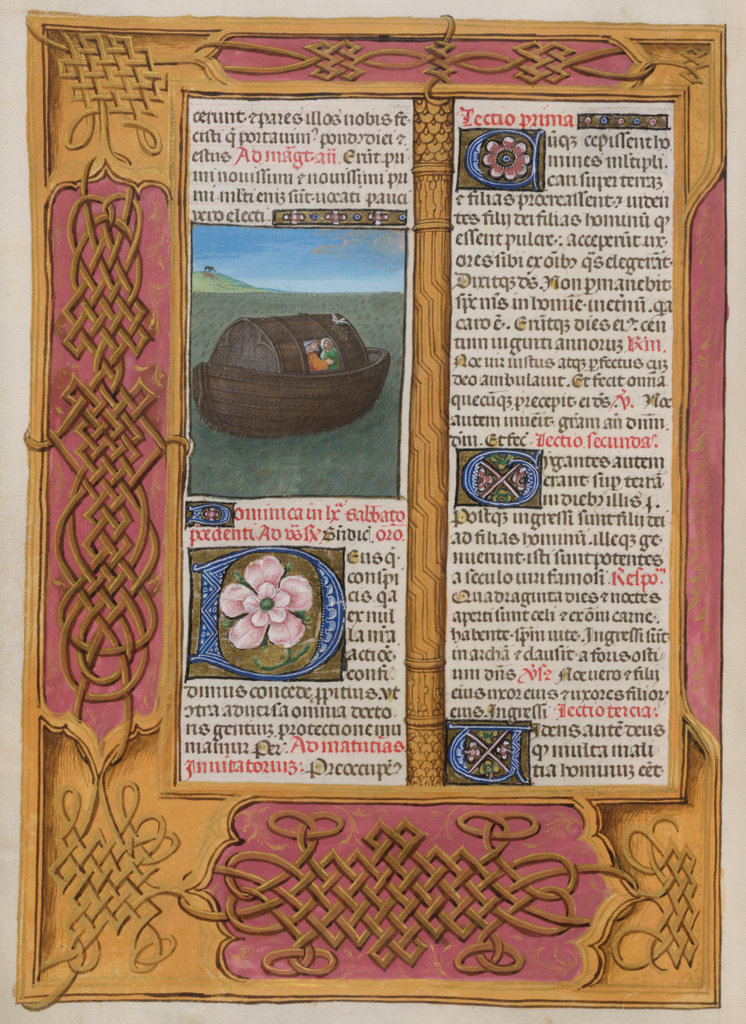 cerunt ⁊ pares illos nobis fe
cisti q̇ portauim᷒ pond᷒ diei ⁊
estus Ad mag̅t. an̅. Erūt pri
mi nouissimi ⁊ nouissimi pri
mi. mlti enim sūt uocati pauci
vero electi.
Dominica in lx̅. Sabbato
precedenti. Ad vs̅ Bn̅dic̅. oro̅.
Deus q̇
conspi
cis qa
ex nul
la nr̅a
actiōe
confi
dimus concede ꝓpitius. vt
cōtra aduersa omnia docto
ris gentium protectione mu
niamur. Per. Ad matutīas
Inuitatorium. Preocupem᷒
Lectio prima
Cūqꝫ cepissent ho
mines mltipli
cari super terraꝫ
⁊ filias procreassent ⁊ viden
tes filij dei filias hominū q̇
essent pulcre: acceperūt ux
ores sibi ex oīb᷒ q̄s elegerāt
Dixitqꝫ ds̅. Non ꝑmanebit
spc̅ me᷒ in homīe in etnū. qa
caro ē. Erūtqꝫ dies ei᷒ cen
tum viginti annorum Rm̅.
Noe vir iustus atqꝫ ꝑfectus cuꝫ
deo ambulauit. Et fecit omīa
quecūqꝫ precepit ei ds̅ ℣. Noe
autem inuēit grām an̄ dnm̅
dm̅. Et fec̅. Lectio secunda.
Gigantes autem
erant suꝑ terrā
in dieb᷒ illis ꝭ.
Postqꝫ ingressi sunt filij dei
ad filias hominū. illeqꝫ ge
nuerunt. isti sunt potentes
a seculo uiri famosi. Respo̅.
Quadraginta dies ⁊ noctes
aperti sunt celi ⁊ ex om̄i carne
habente spm̅ uite. Ingressi sūt
in archā ⁊ clausit a foris osti
um dn̅s ℣se Noe vero ⁊ filij
eius uxor eius ⁊ uxores filior
eius. Ingressi Lectio tercia.
Videns autē deus
qꝫ multa mali
tia hominum eēt